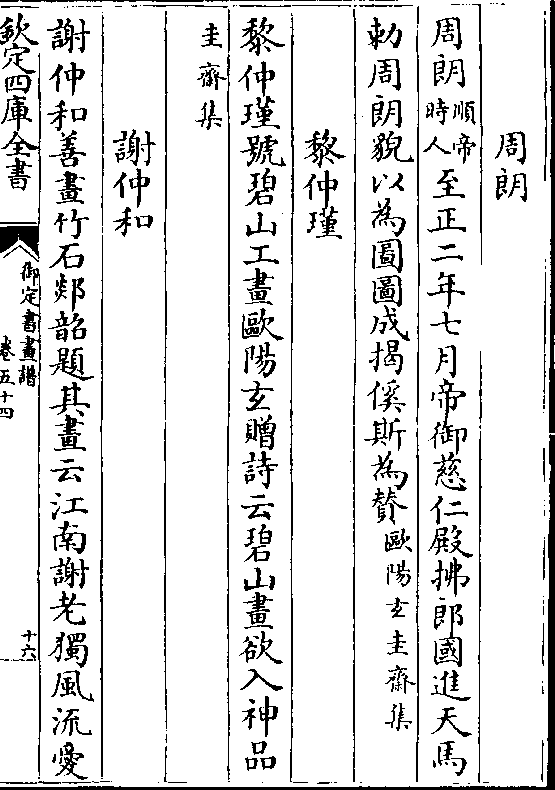 周朗
周朗順帝時人至正二年七月帝御慈仁殿拂郎國進天馬
勅周朗貌以為圖圖成揭傒斯為賛歐陽玄圭齋集
黎仲瑾
黎仲瑾號碧山工畫歐陽玄贈詩云碧山畫欲入神品
圭齋集
謝仲和
謝仲和善畫竹石郯韶題其畫云江南謝老獨風流愛
欽定四庫全書
御定書畫譜
卷五十四
十六